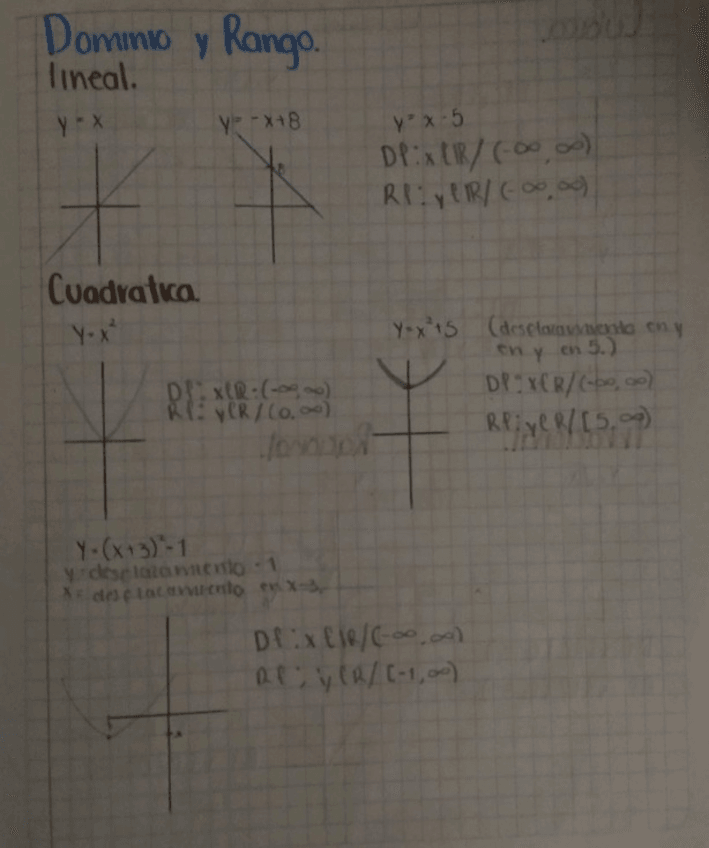 Dominio y Rango.
lineal.
y = x
y = -x+8
y = x - 5
Df: x∈ℝ/(-∞, ∞)
8
Rf: y∈ℝ/(-∞, ∞)
Cuadratica
y = x²
y = x²+5 (desplazamiento en y
en y en 5.)
Df: x∈ℝ = (-∞, ∞)
Df: x∈ℝ/(-∞, ∞)
Rf: y∈ℝ/(0, ∞)
Rf: y∈ℝ/[5, ∞)
y = (x+3)² - 1
y = desplazamiento - 1
x = desplazamiento en x -3,
Df: x∈ℝ/(-∞, ∞)
Rf: y∈ℝ/[-1, ∞)